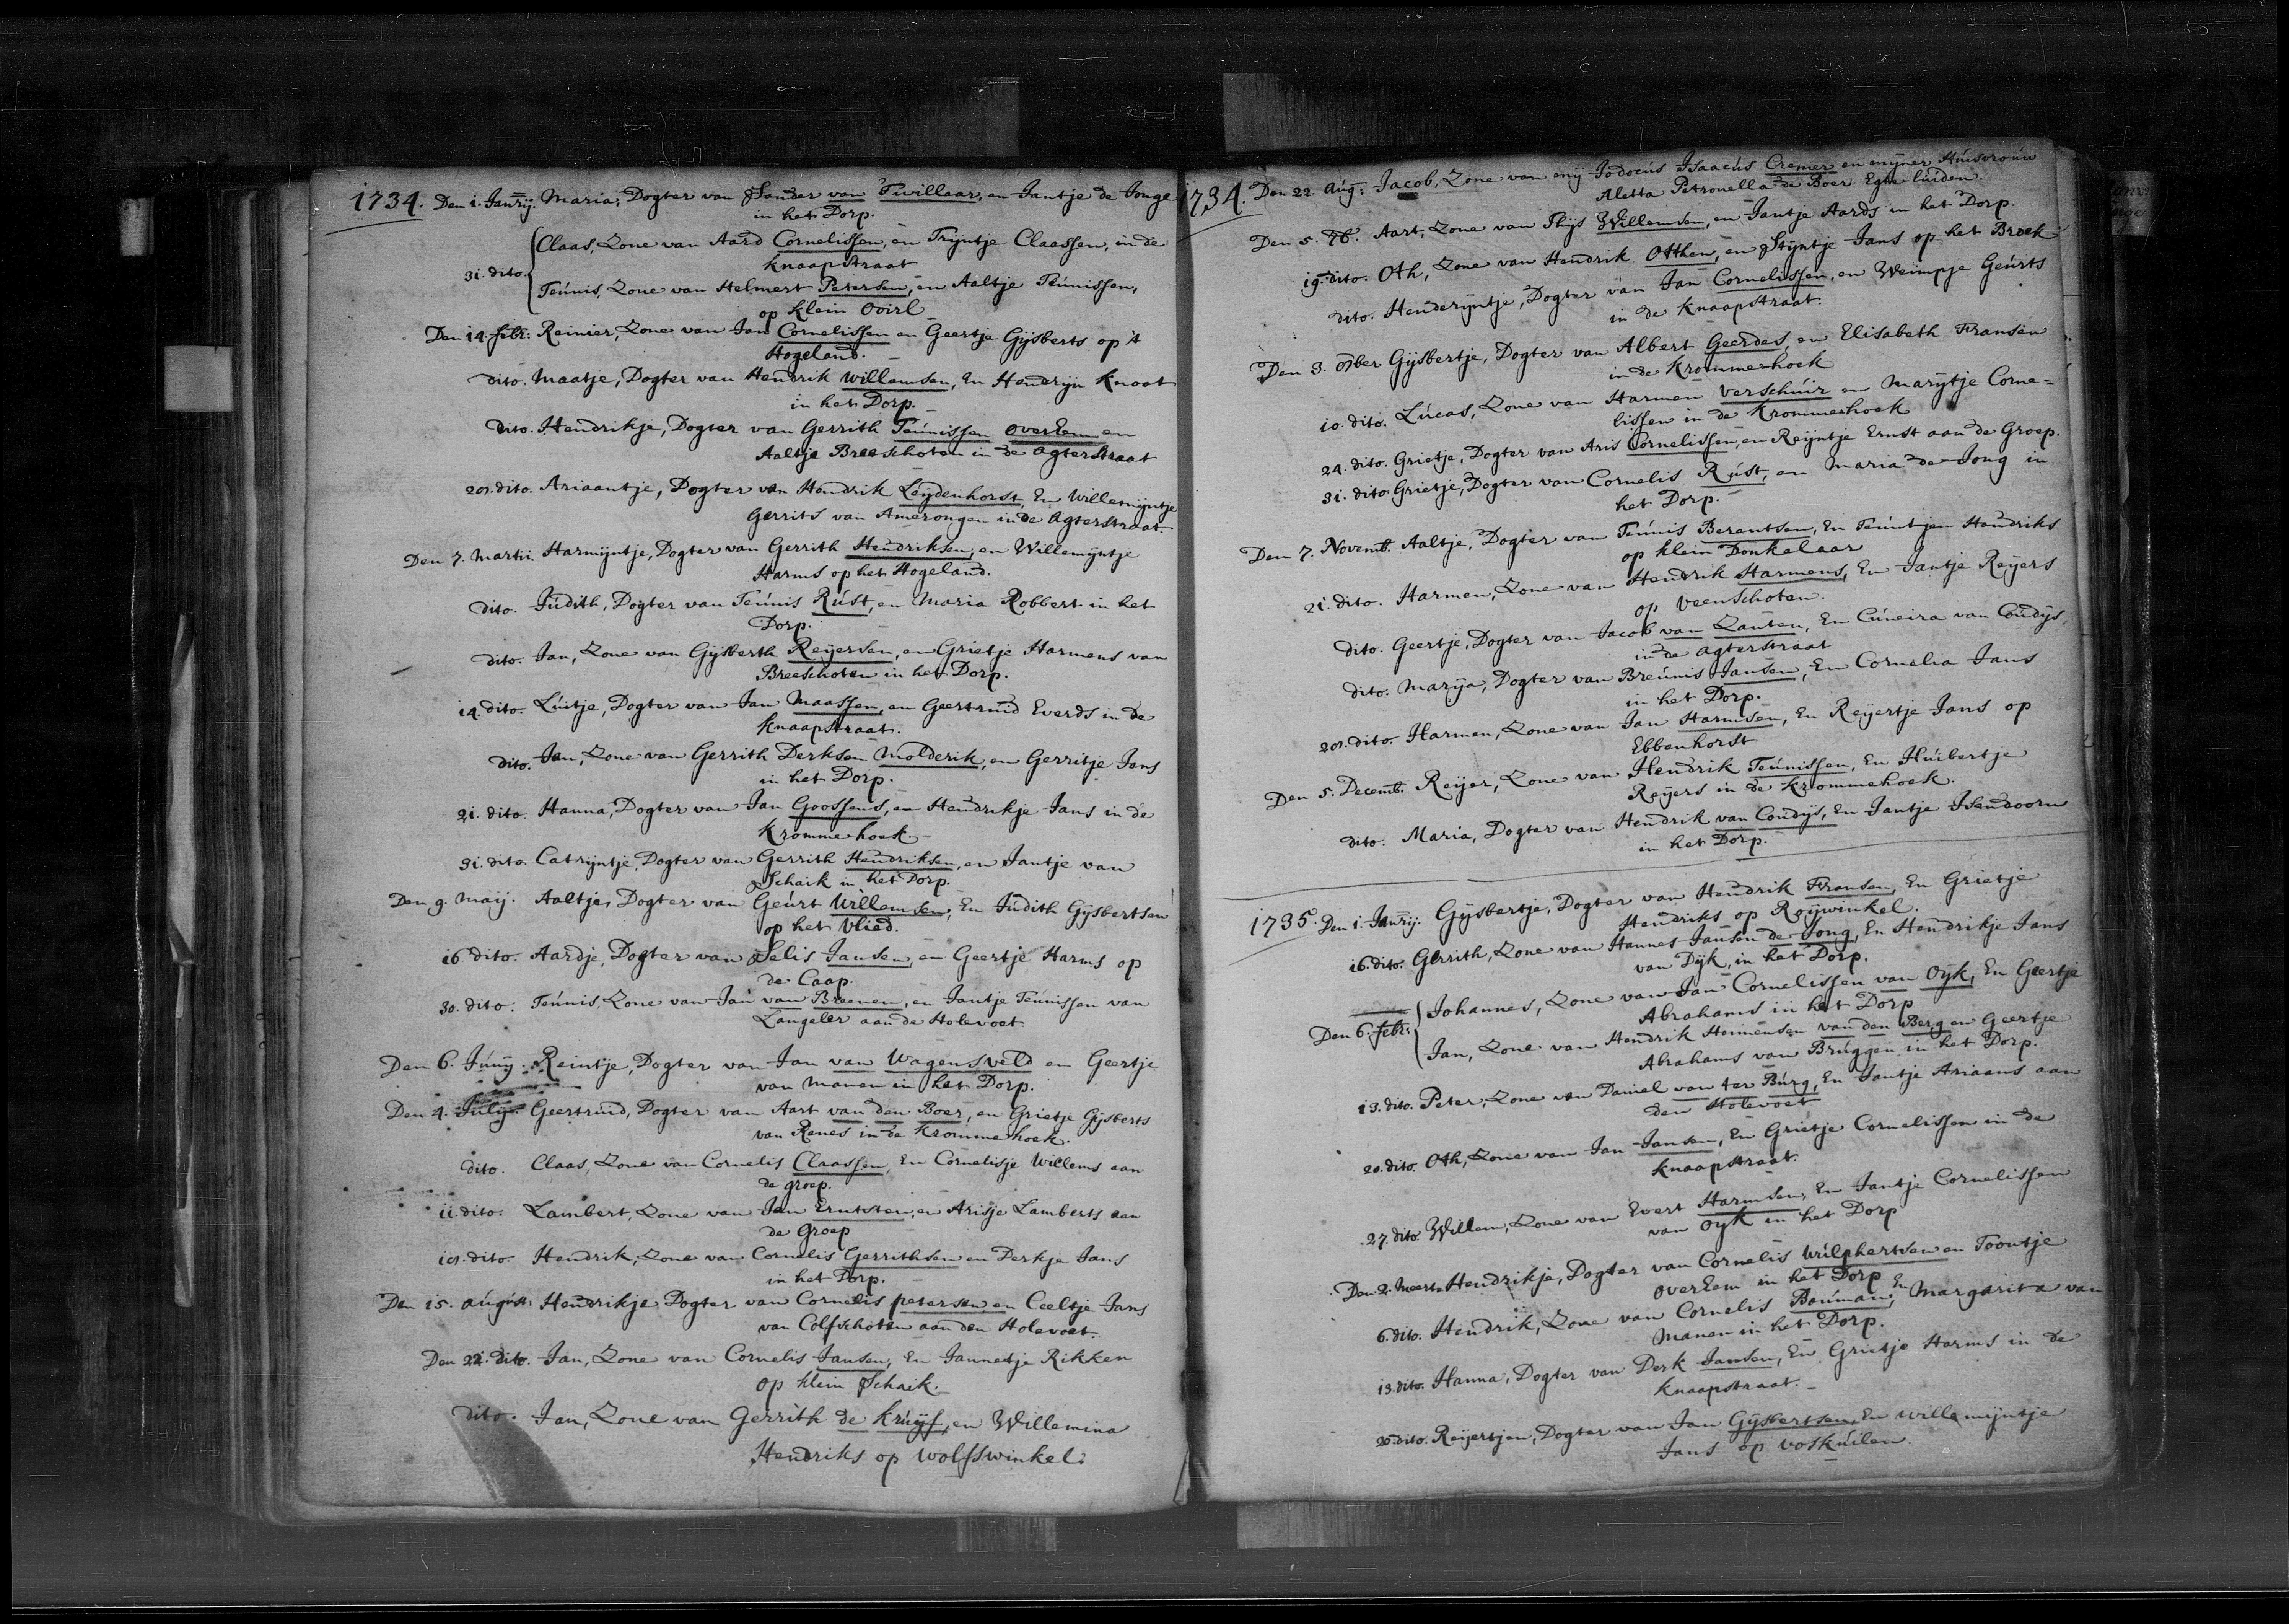 1734. Den 1. Janrij. Maria, Dogter van Sander van Twillaar, en Jantje de Jonge
in het Dorp.
31. dito. Claas, Zone van Aard Cornelissen, en Trijntje Claassen, in de
Knaapstraat
Teunis, Zone van Helmert Petersen, en Aaltje Teunissen,
op klein Ooirl
Den 14. febr: Reinier, Zone van Jan Cornelissen en Geertje Gijsberts op 't
Hogeland.
dito. Maatje, Dogter van Hendrik Willemsen, En Hendrijn Knoot
in het Dorp.
dito. Hendrikje, Dogter van Gerrith Teunissen Overeem en
Aaltje Breeschoten in de Agterstraat
28. dito. Ariaantje, Dogter van Hendrik Leijdenhorst, En Willemijntje
Gerrits van Amerongen in de Agterstraat.
Den 7. Martii. Harmijntje, Dogter van Gerrith Hendriksen, en Willemijntje
Harms op het Hogeland.
dito. Judith, Dogter van Teunis Rust, en Maria Robbert in het
Dorp.
dito. Jan, Zone van Gijsberth Reijersen, en Grietje Harmens van
Breeschoten in het Dorp.
14. dito. Luitje, Dogter van Jan Maassen, en Geertruid Everds in de
Knaapstraat.
dito. Jan, Zone van Gerrith Derksen Molderik, en Gerritje Jans
in het Dorp.
21. dito. Hanna, Dogter van Jan Goossens, en Hendrikje Jans in de
Kromme hoek.
31. dito. Catrijntje, Dogter van Gerrith Hendriksen, en Jantje van
Schaik in het Dorp.
Den 9. Maij. Aaltje, Dogter van Geurt Willemsen, En Judith Gijsbertsen
op het Vlied.
16 dito. Aardje, Dogter van Selis Jansen, en Geertje Harms op
de Caap.
30. dito. Teunis, Zone van Jan van Breenen, en Jantje Teunissen van
Langeler aan de Holevoet.
Den 6. Junij. Reintje, Dogter van Jan van Wagensveld en Geertje
van Manen in het Dorp.
Den 4. Julij. Geertruid, Dogter van Aart van den Boer, en Grietje Gijsberts
van Renes in de Kromme hoek.
dito. Claas, Zone van Cornelis Claassen, En Cornelisje Willems aan
de groep.
11. dito. Lambert, Zone van Jan Erntsten, en Arisje Lamberts aan
de Groep
18. dito. Hendrik, Zone van Cornelis Gerrithsen en Derkje Jans
in het Dorp.
Den 15. August: Hendrikje Dogter van Cornelis petersen en Ceeltje Jans
van Colfschoten aan den Holevoet.
Den 22. dito. Jan, Zone van Cornelis Jansen, En Jannetje Rikken
op klein Schaik.
dito. Jan, Zone van Gerrith de Kruijf, en Willemina
Hendriks op Wolfswinkel.
1734. Den 22. Aug: Jacob, Zone van mij Jodocus Isaacus Cremer en mijner Huisvrouw
Aletta Petronella de Boer Egte luiden.
Den 5. 7b. Aart, Zone van Thijs Willemsen, en Jantje Aards in het Dorp.
19. dito. Oth, Zone van Hendrik Otthen, en Stijntje Jans op het Broek
dito. Henderijntje, Dogter van Jan Cornelissen, en Weimpje Geurts
in de Knaapstraat.
Den 3. 8ber Gijsbertje, Dogter van Albert Geerdes, en Elisabeth Fransen
in de Krommenhoek
10. dito. Lucas, Zone van Harmen Verschuir en Marijtje Corne=
lissen in de Krommenhoek
24. dito. Grietje, Dogter van Aris Cornelissen, en Reijntje Ernst aan de Groep.
31. dito. Grietje, Dogter van Cornelis Rust, en Maria de Jong in
het Dorp.
Den 7. Novemb. Aaltje, Dogter van Teunis Berentsen, En Teuntjen Hendriks
op klein Donkelaar
21. dito. Harmen, Zone van Hendrik Harmens, En Jantje Reijers
op Veenschoten.
dito. Geertje, Dogter van Jacob van Zanten, En Cuneira van Coudijs,
in de Agterstraat
dito. Marija, Dogter van Breunis Jansen, En Cornelia Jans
in het Dorp.
28. dito. Harmen, Zone van Jan Harmsen, En Reijertje Jans op
Ebbenhorst
Den 5. Decemb. Reijer, Zone van Hendrik Teunissen, En Huibertje
Reijers in de Krommehoek.
dito. Maria, Dogter van Hendrik van Coudijs, En Jantje Isendoorn
in het Dorp.
1735. Den 1. Janrij. Gijsbertje, Dogter van Hendrik Fransen, En Grietje
Hendriks op Roijwinkel.
16. dito. Gerrith, Zone van Hannes Jansen de Jong, En Hendrikje Jans
van Dijk, in het Dorp.
Den 6. febr: Johannes, Zone van Jan Cornelissen van Oijk, En Geertje
Abrahams in het Dorp
Jan, Zone van Hendrik Heimensen van den Berg en Geertje
Abrahams van Bruggen in het Dorp.
13. dito. Peter, Zone van Daniel van ter Burg, En Jantje Ariaans aan
den Holevoet
20. dito. Oth, Zone van Jan Jansen, En Grietje Cornelissen in de
Knaapstraat.
27. dito. Willem, Zone van Evert Harmsen, En Jantje Cornelissen
van Oijk in het Dorp
Den 2. Meert. Hendrikje, Dogter van Cornelis Wulphertsen en Toontje
Overeem in het Dorp
6. dito. Hendrik, Zone van Cornelis Bouman, En Margarita van
Manen in het Dorp.
13. dito. Hanna, Dogter van Derk Jansen, En Grietje Harms in de
Knaapstraat.
20. dito. Reijertjen, Dogter van Jan Gijsbertsen, En Willemijntje
Jans op Voskuilen.